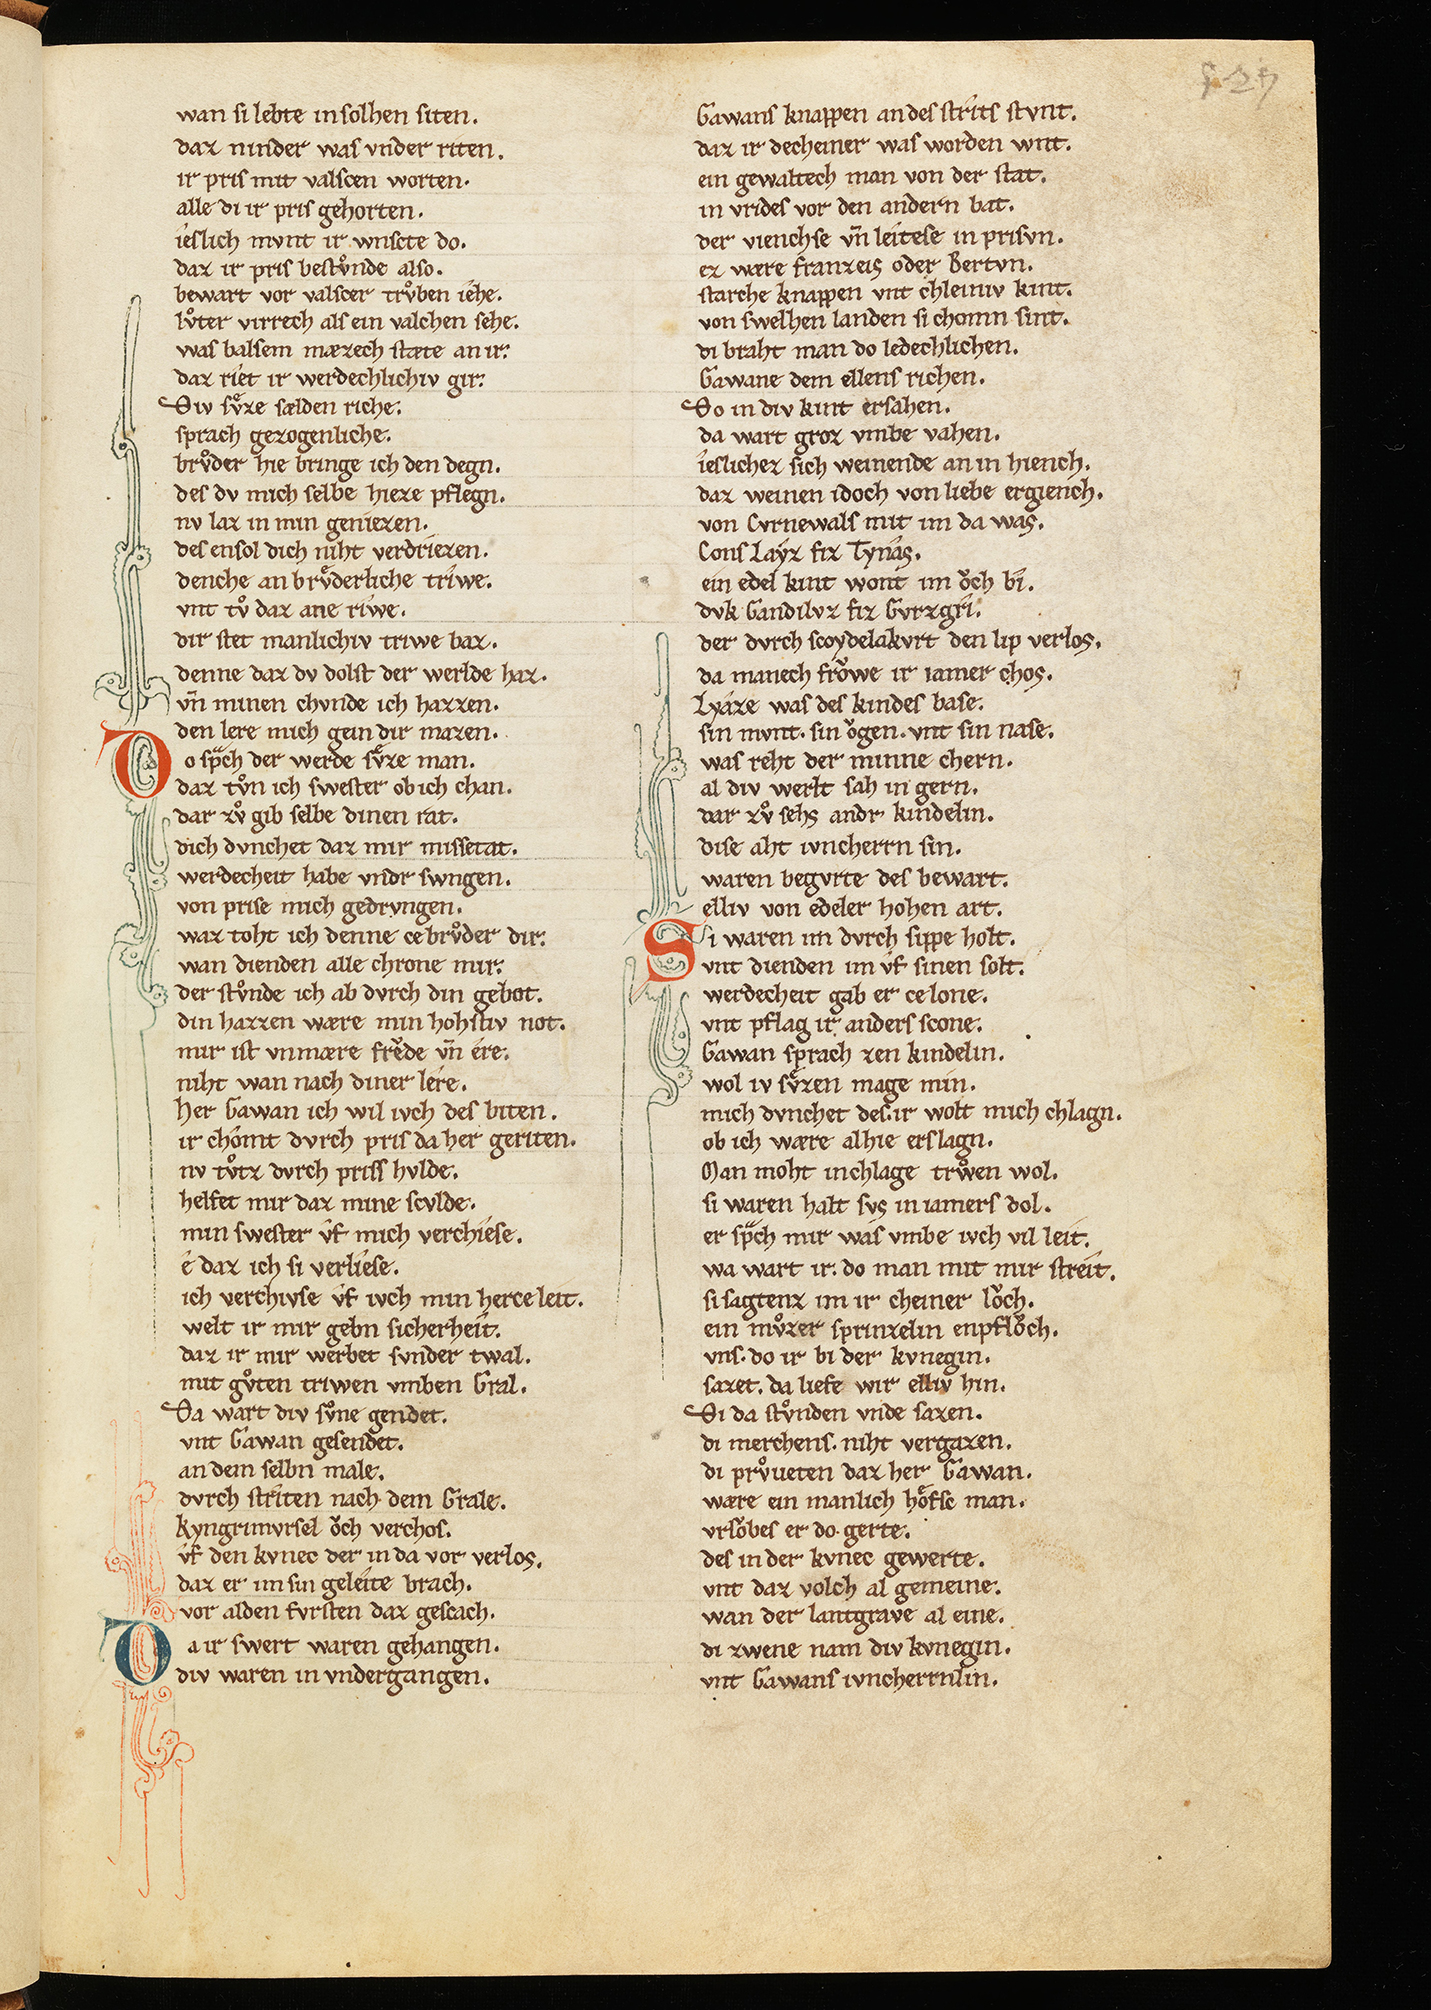 wan si lebte in solhen siten.
daz ninder was vnder riten.
ir pris mit valscen worten.
alle di ir pris gehorten.
ieslich mvnt ir wnscte do.
daz ir pris bestv̊nde also.
bewart vor valscer trv̊ben iehe.
lv̊ter virrech als ein valchen sehe.
was balsem mæzech stæte an ir.
daz riet ir werdechlichiv gir.
Div sv̊ze sælden riche.
sprach gezogenliche.
brv̊der hie bringe ich den degn.
des dv mich selbe hieze pflegn.
nv laz in min geniezen.
des ensol dich niht verdriezen.
denche an brv̊derliche triwe.
vnt tv̊ daz ane riwe.
dir stet manlichiv triwe baz.
denne daz dv dolst der werlde haz.
vn̄ minen chvnde ich hazzen.
den lere mich gein dir mazen.
Do sp̄ch der werde sv̊ze man.
daz tv̊n ich swester ob ich chan.
dar zv̊ gib selbe dinen rat.
dich dvnchet daz mir missetat.
werdecheit habe vndr swngen.
von prise mich gedrvngen.
waz toht ich denne ce brv̊der dir.
wan dienden alle chrone mir.
der stv̊nde ich ab dvrch din gebot.
din hazzen wære min hohstiv not.
mir ist vnmære frevde vn̄ ere.
niht wan nach diner lere.
Her Gawan ich wil ivch des biten.
ir chomt dvrch pris da her geriten.
nv tv̊tz dvrch priss hvlde.
helfet mir daz mine scvlde.
min swester v̂f mich verchiese.
e daz ich si verliese.
ich verchivse v̂f ivch min herce leit.
welt ir mir gebn sicherheit.
daz ir mir werbet svnder twal.
mit gv̊ten triwen vmben Gral.
Da wart div sv̊ne gendet.
vnt Gawan gesendet.
an dem selbn male.
dvrch striten nach dem Grale.
Kyngrimvrsel ǒch verchos.
v̂f den kvnec der in da vor verlos.
daz er im sin geleite brach.
vor alden fvrsten daz gescach.
Da ir swert waren gehangen.
div waren in vndergangen.
Gawans knappen an des strits stvnt.
daz ir decheiner was worden wnt.
ein gewaltech man von der stat.
in vrides vor den andern bat.
der viench se vn̄ leitese in prisvn.
ez wære franzeis oder Bertvn.
starche knappen vnt chleiniv kint.
von swelhen landen si chomn sint.
di braht man do ledechlichen.
Gawane dem ellens richen.
Do in div kint ersahen.
da wart groz vmbe vahen.
ieslichez sich weinende an in hiench.
daz weinen idoch von liebe ergiench.
von Cvrnewals mit im da was.
Cons Layz fiz Tynas.
ein edel kint wont im ǒch bi.
dvk Gandilvz fiz Gvrzgri.
der dvrch scoydelakvrt den lip verlos.
da manech frǒwe ir iamer chos.
Lyaze was des kindes base.
sin mvnt. sin ǒgen. vnt sin nase.
was reht der minne chern.
al div werlt sah in gern.
dar zv̊ sehs andr kindelin.
dise aht ivncherrn sin.
waren begvrte des bewart.
elliv von edeler hohen art.
Si waren im dvrch sippe holt.
vnt dienden im v̂f sinen solt.
werdecheit gab er ce lone.
vnt pflag ir anders scone.
Gawan sprach zen kindelin.
wol iv sv̊zen mage min.
mich dvnchet des. ir wolt mich chlagn.
ob ich wære alhie erslagn.
Man moht in chlage trǒwen wol.
si waren halt svs in iamers dol.
er sp̄ch mir was vmbe ivch vil leit.
wa wart ir. do man mit mir streit.
si sagtenz im ir cheiner lǒch.
ein mv̊zer sprinzelin enpflǒch.
vns. do ir bi der kvnegin.
sazet. da liefe wir elliv hin.
Di da stv̊nden vnde sazen.
di merchens. niht vergazen.
di prv̊ueten daz her Gawan.
wære ein manlich hǒfsc man.
vrlǒbes er do gerte.
des in der kvnec gewerte.
vnt daz volch al gemeine.
wan der lantgrave al eine.
di zwene nam div kvnegin.
vnt Gawans ivncherrnlin.